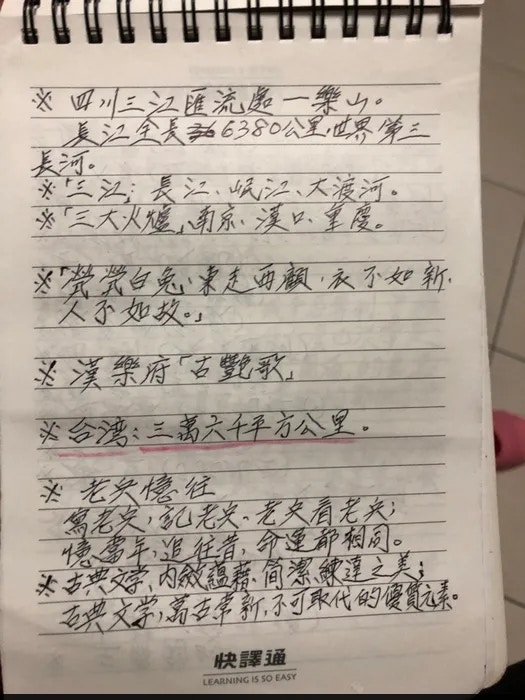 ※ 四川三江匯流處—樂山。
長江全長6380公里,世界第三
長河。
※「三江」:長江、岷江、大渡河。
※「三大火爐」南京、漢口、重慶。
※「煢煢白兔,東走西顧,衣不如新,
人不如故。」
※ 漢樂府「古艷歌」
※ 台湾:三萬六千平方公里。
※ 老兵憶往
寫老兵,記老兵、老兵看老兵;
憶當年,追往昔,命運都相同。
※ 古典文学,內斂蘊藉,簡潔練達之美;
古典文学,萬古常新,不可取代的優質元素。
快譯通
LEARNING IS SO EASY